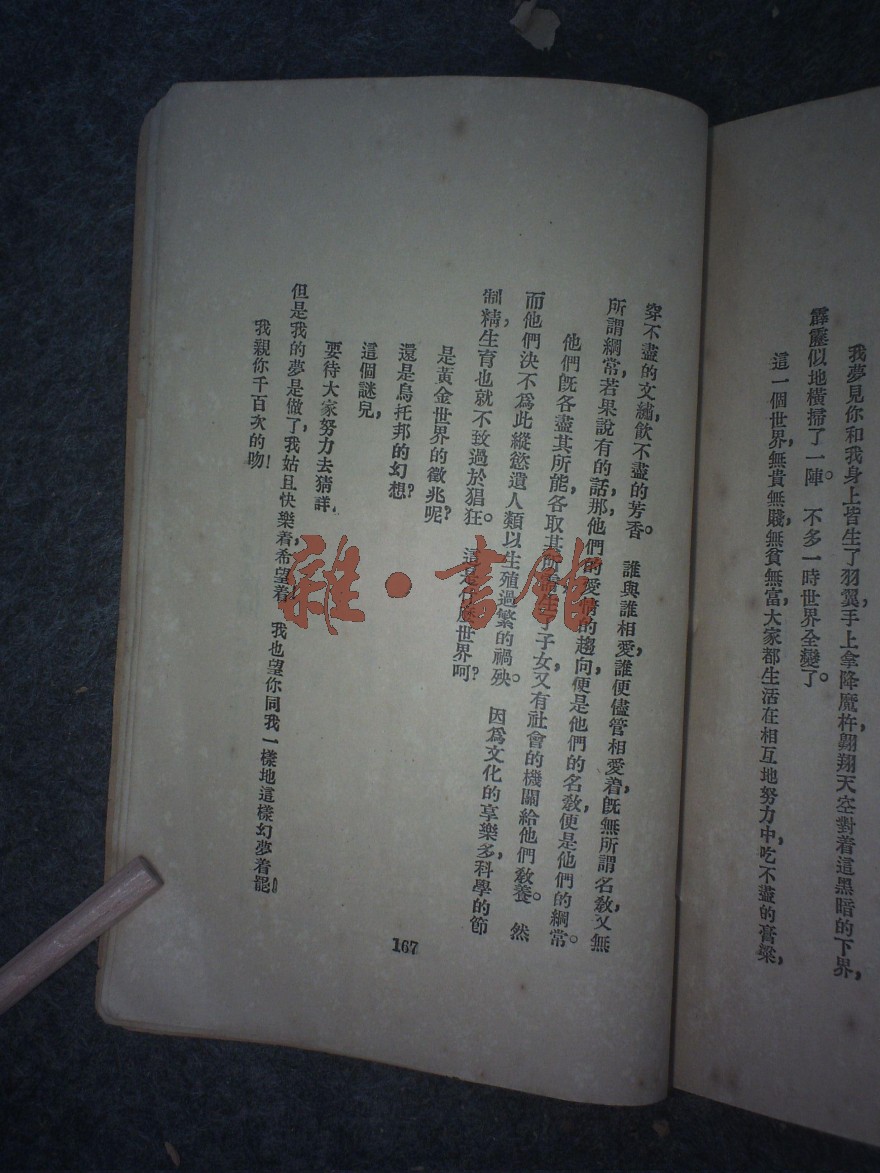 我夢見你和我身上皆生了羽翼，手上拿降魔杵，翱翔天空，對着這黑暗的下界，
霹靂似地橫掃了一陣。 不多一時世界全變了，
這一個世界，無貴無賤，無貧無富，大家都生活在相互地努力中，吃不盡的膏粱，
穿不盡的文繡，飲不盡的芳香。 誰與誰相愛，誰便儘管相愛着，既無所謂名敎，又無
所謂綱常，若果說有的話，那他們的愛情的趨向便是他們的名敎，便是他們的綱常。
他們既各盡其所能，各取其所需，生了子女，又有社會的機關給他們敎養。 然
而他們決不爲此縱慾，遺人類以生殖過繁的禍殃。 因爲文化的享樂多，科學的節
制，精生育也就不致過於猖狂。 這是什麽世界呵？
是黃金世界的徵兆呢？
還是烏托邦的幻想？
這個謎兒，
要待大家努力去猜詳。
但是我的夢是做了，我姑且快樂着，希望着， 我也望你同我一樣地這樣幻夢着罷！
我親你千百次的吻！
167
雜·書館